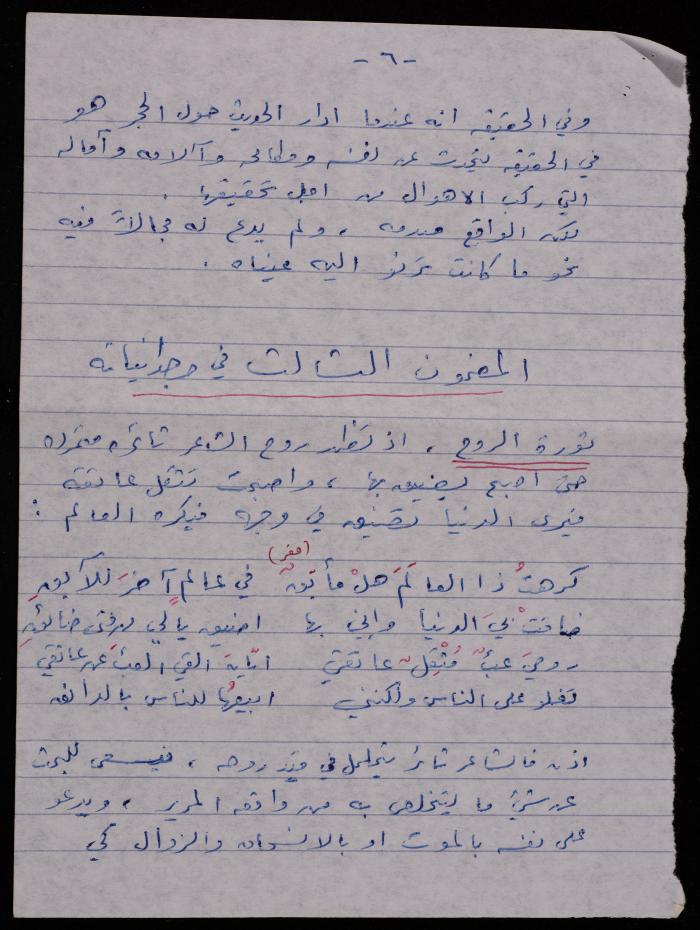 - ٦ -
وفي الحقيقه انه عندما ادار الحديث حول الحجر هو
في الحقيقه يتحدث عن نفسه ومطامحه وآلامه وآماله
التي ركب الاهوال من اجل تحقيقها .
لكن الواقع صدمه ، ولم يدع له مجالات فيه
نحو ما كانت ترنو اليه عيناه .
المضمون الثالث في وجدانياته
ثورة الروح ، اذ تظهر روح الشاعر ثائره متمرده
حتى اصبح يضيق بها ، واصبحت تثقل عاتقه
فيرى الدنيا تضيق في وجهه فيكره العالم :
(مفر)
كرهتُ ذا العالَمَ هلْ مأبَقٌ في عالم آخرَ للآبقِ
ضاقتْ بيَ الدنيا وإني بها اضيق يا لي من فتى ضائقِ
روحيَ عبءٌ مُثْقِلٌ عاتقي ايّايَ القي العبءَ عن عاتقي
تغلو على الناس ولكنني ابيعُها للناس بالدانق
اذن فالشاعر ثائر يتململ في قيد روحه ، فيسعى للبحث
عن شيء ما يتخلص به من واقعه المرير ، ويدعو
على نفسه بالموت او بالانسحاق والزوال كي